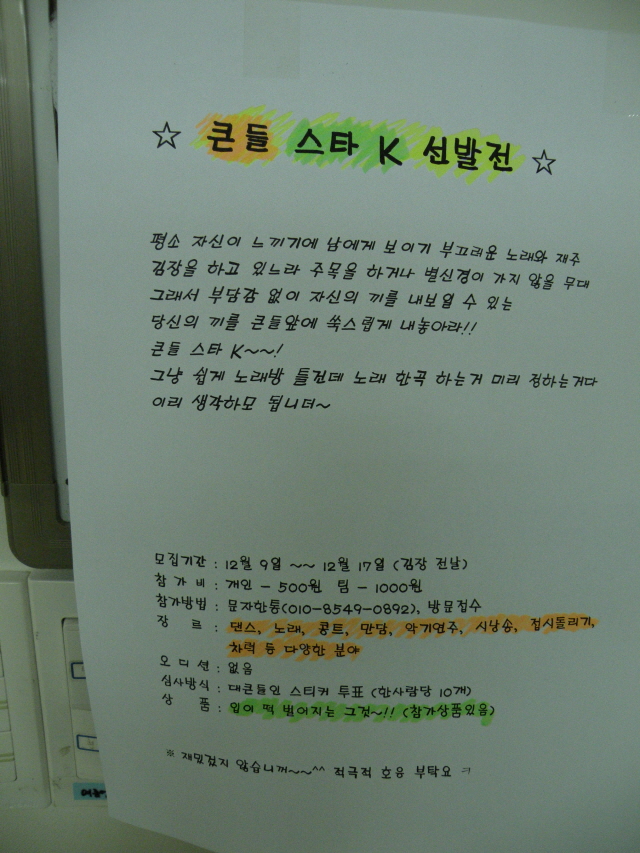 ☆ 큰들 스타 K 선발전 ☆
평소 자신이 느끼기에 남에게 보이기 부끄러운 노래와 재주
김장을 하고 있느라 주목을 하거나 별신경이 가지 않을 무대
그래서 부담감 없이 자신의 끼를 내보일 수 있는
당신의 끼를 큰들앞에 쑥스럽게 내놓아라!!
큰들 스타 K~~!
그냥 쉽게 노래방 들릴껀데 노래 한곡 하는거 미리 정하는거다
이리 생각하모 됩니더~
모집기간 : 12월 9일 ~~ 12월 17일 (김장 전날)
참 가 비 : 개인 - 500원 팀 - 1000원
참가방법 : 문자한통(010-8549-0892), 방문접수
장 르 : 댄스, 노래, 콩트, 만담, 악기연주, 시낭송, 접시돌리기,
차력 등 다양한 분야
오 디 션 : 없음
심사방식 : 대큰들인 스티커 투표 (한사람당 10개)
상 품 : 입이 떡 벌어지는 그것~!! (참가상품있음)
※ 재밌겠지 않습니꺼~~^^ 적극적 호응 부탁요 ㅋ